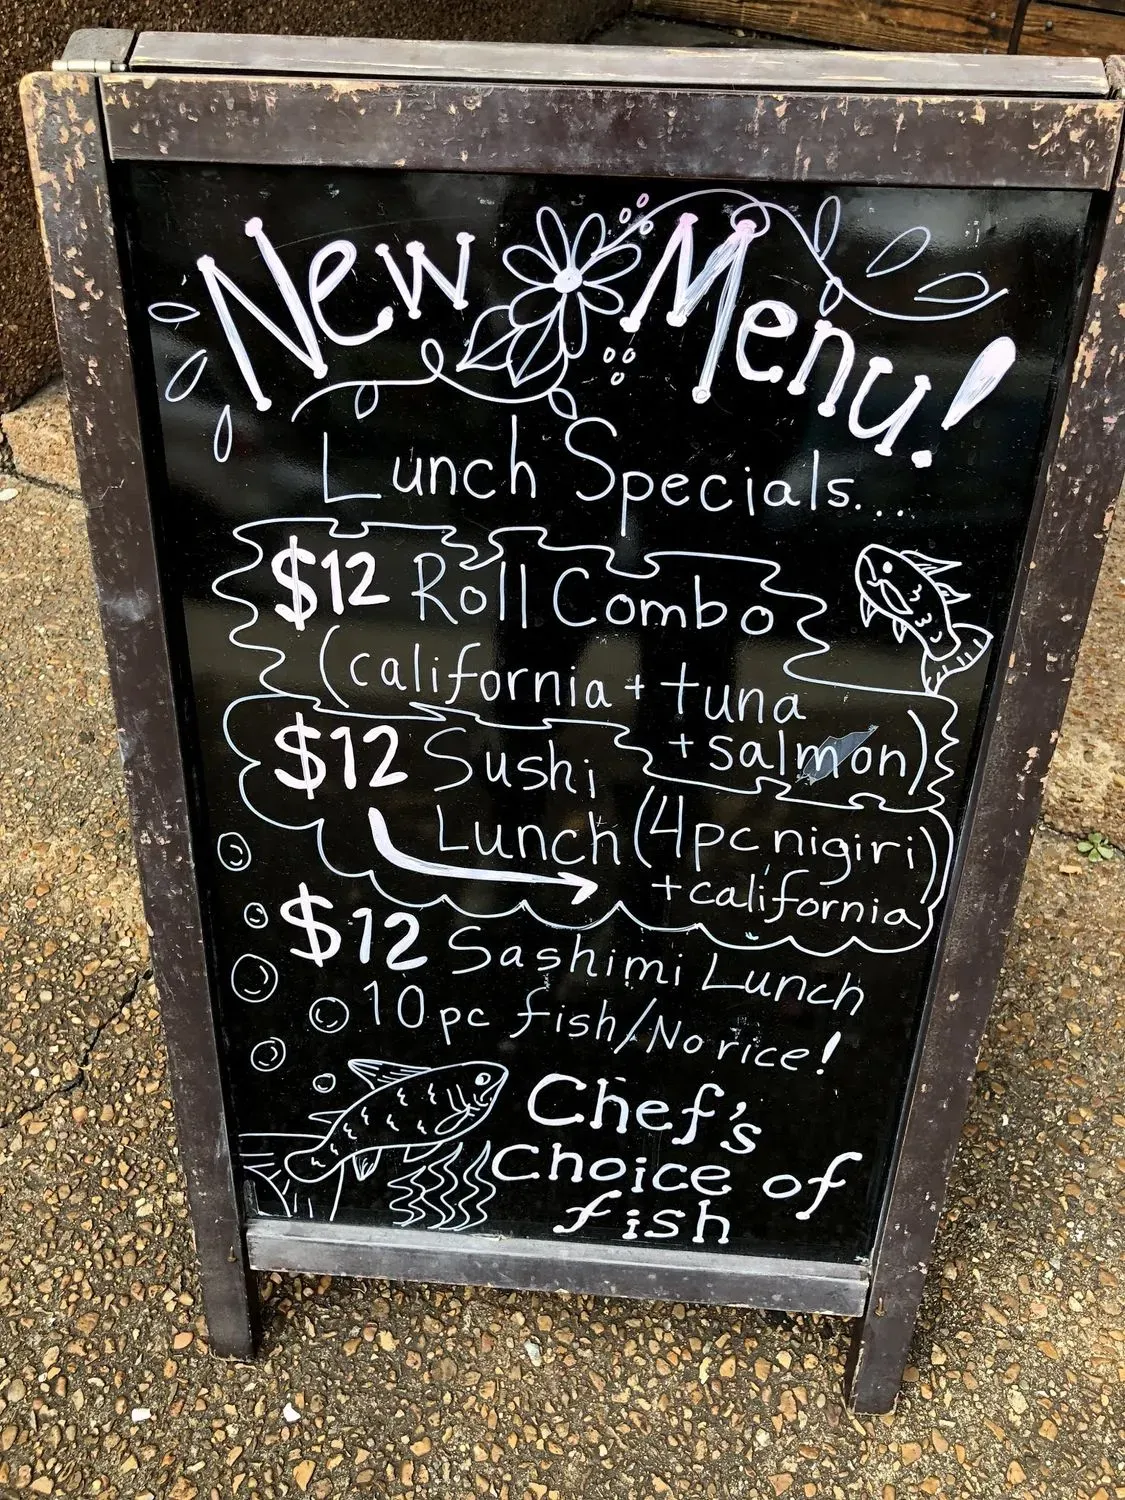 New Menu!
Lunch Specials...
$12 Roll Combo
(california + tuna
+ salmon)
$12 Sushi
Lunch (4pc nigiri)
+ california
$12 Sashimi Lunch
10 pc fish/No rice!
Chef's
Choice of
fish